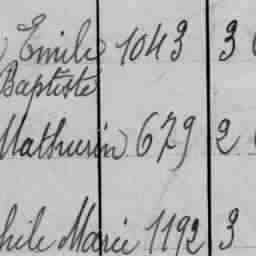 Emile 1043 3
Baptiste
Mathurin 679 2
hile Marie 1192 3